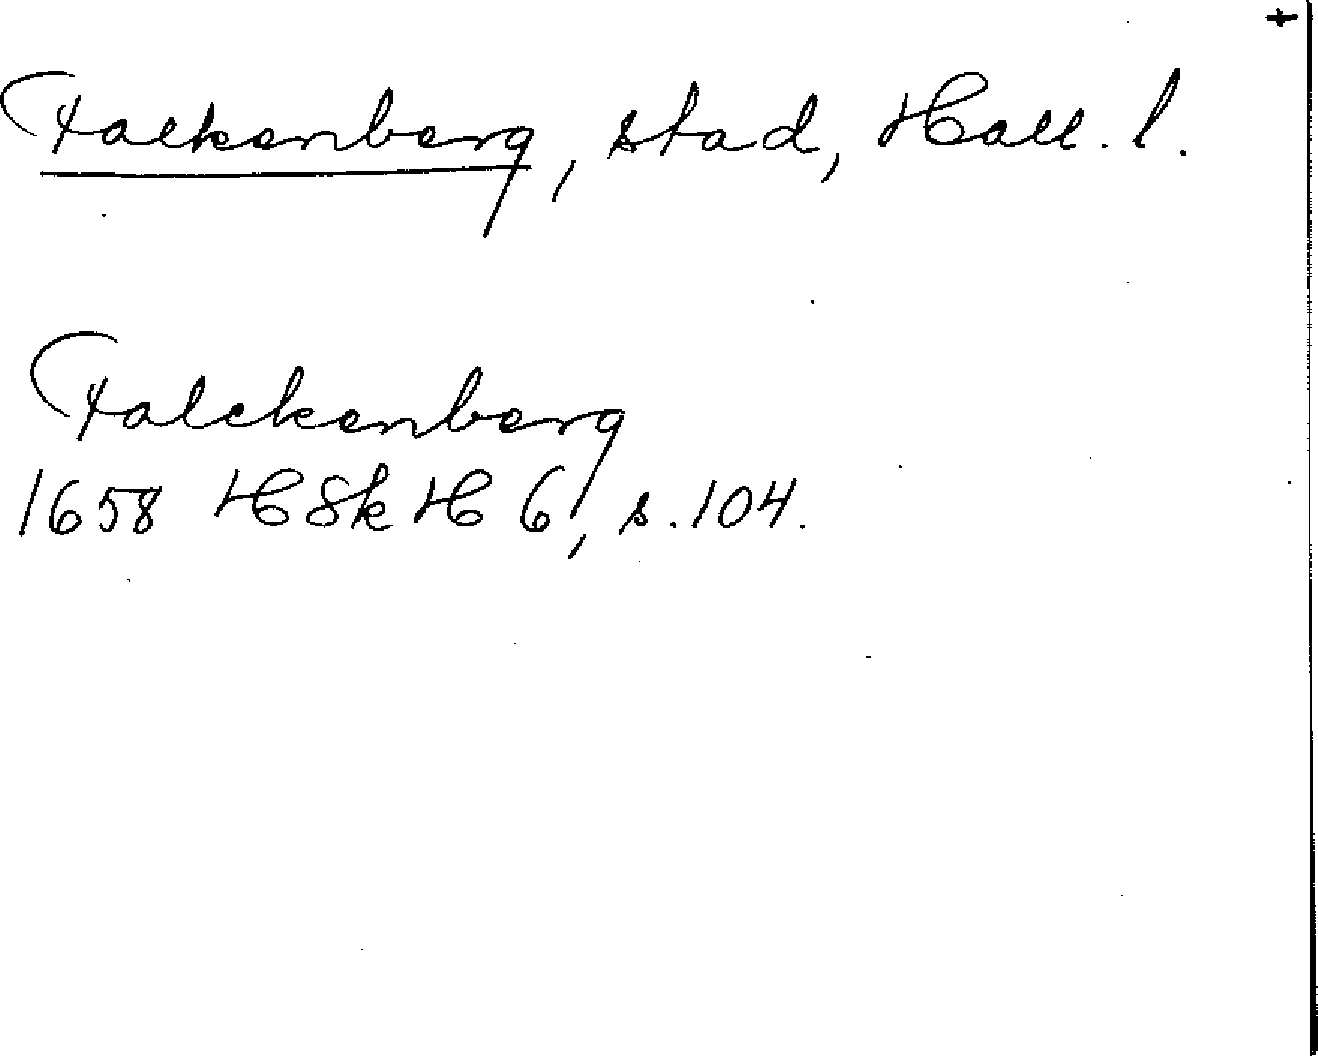 Falkenberg, stad, Hall. l.
Falckenberg
1658 HSkH 6, s. 104.